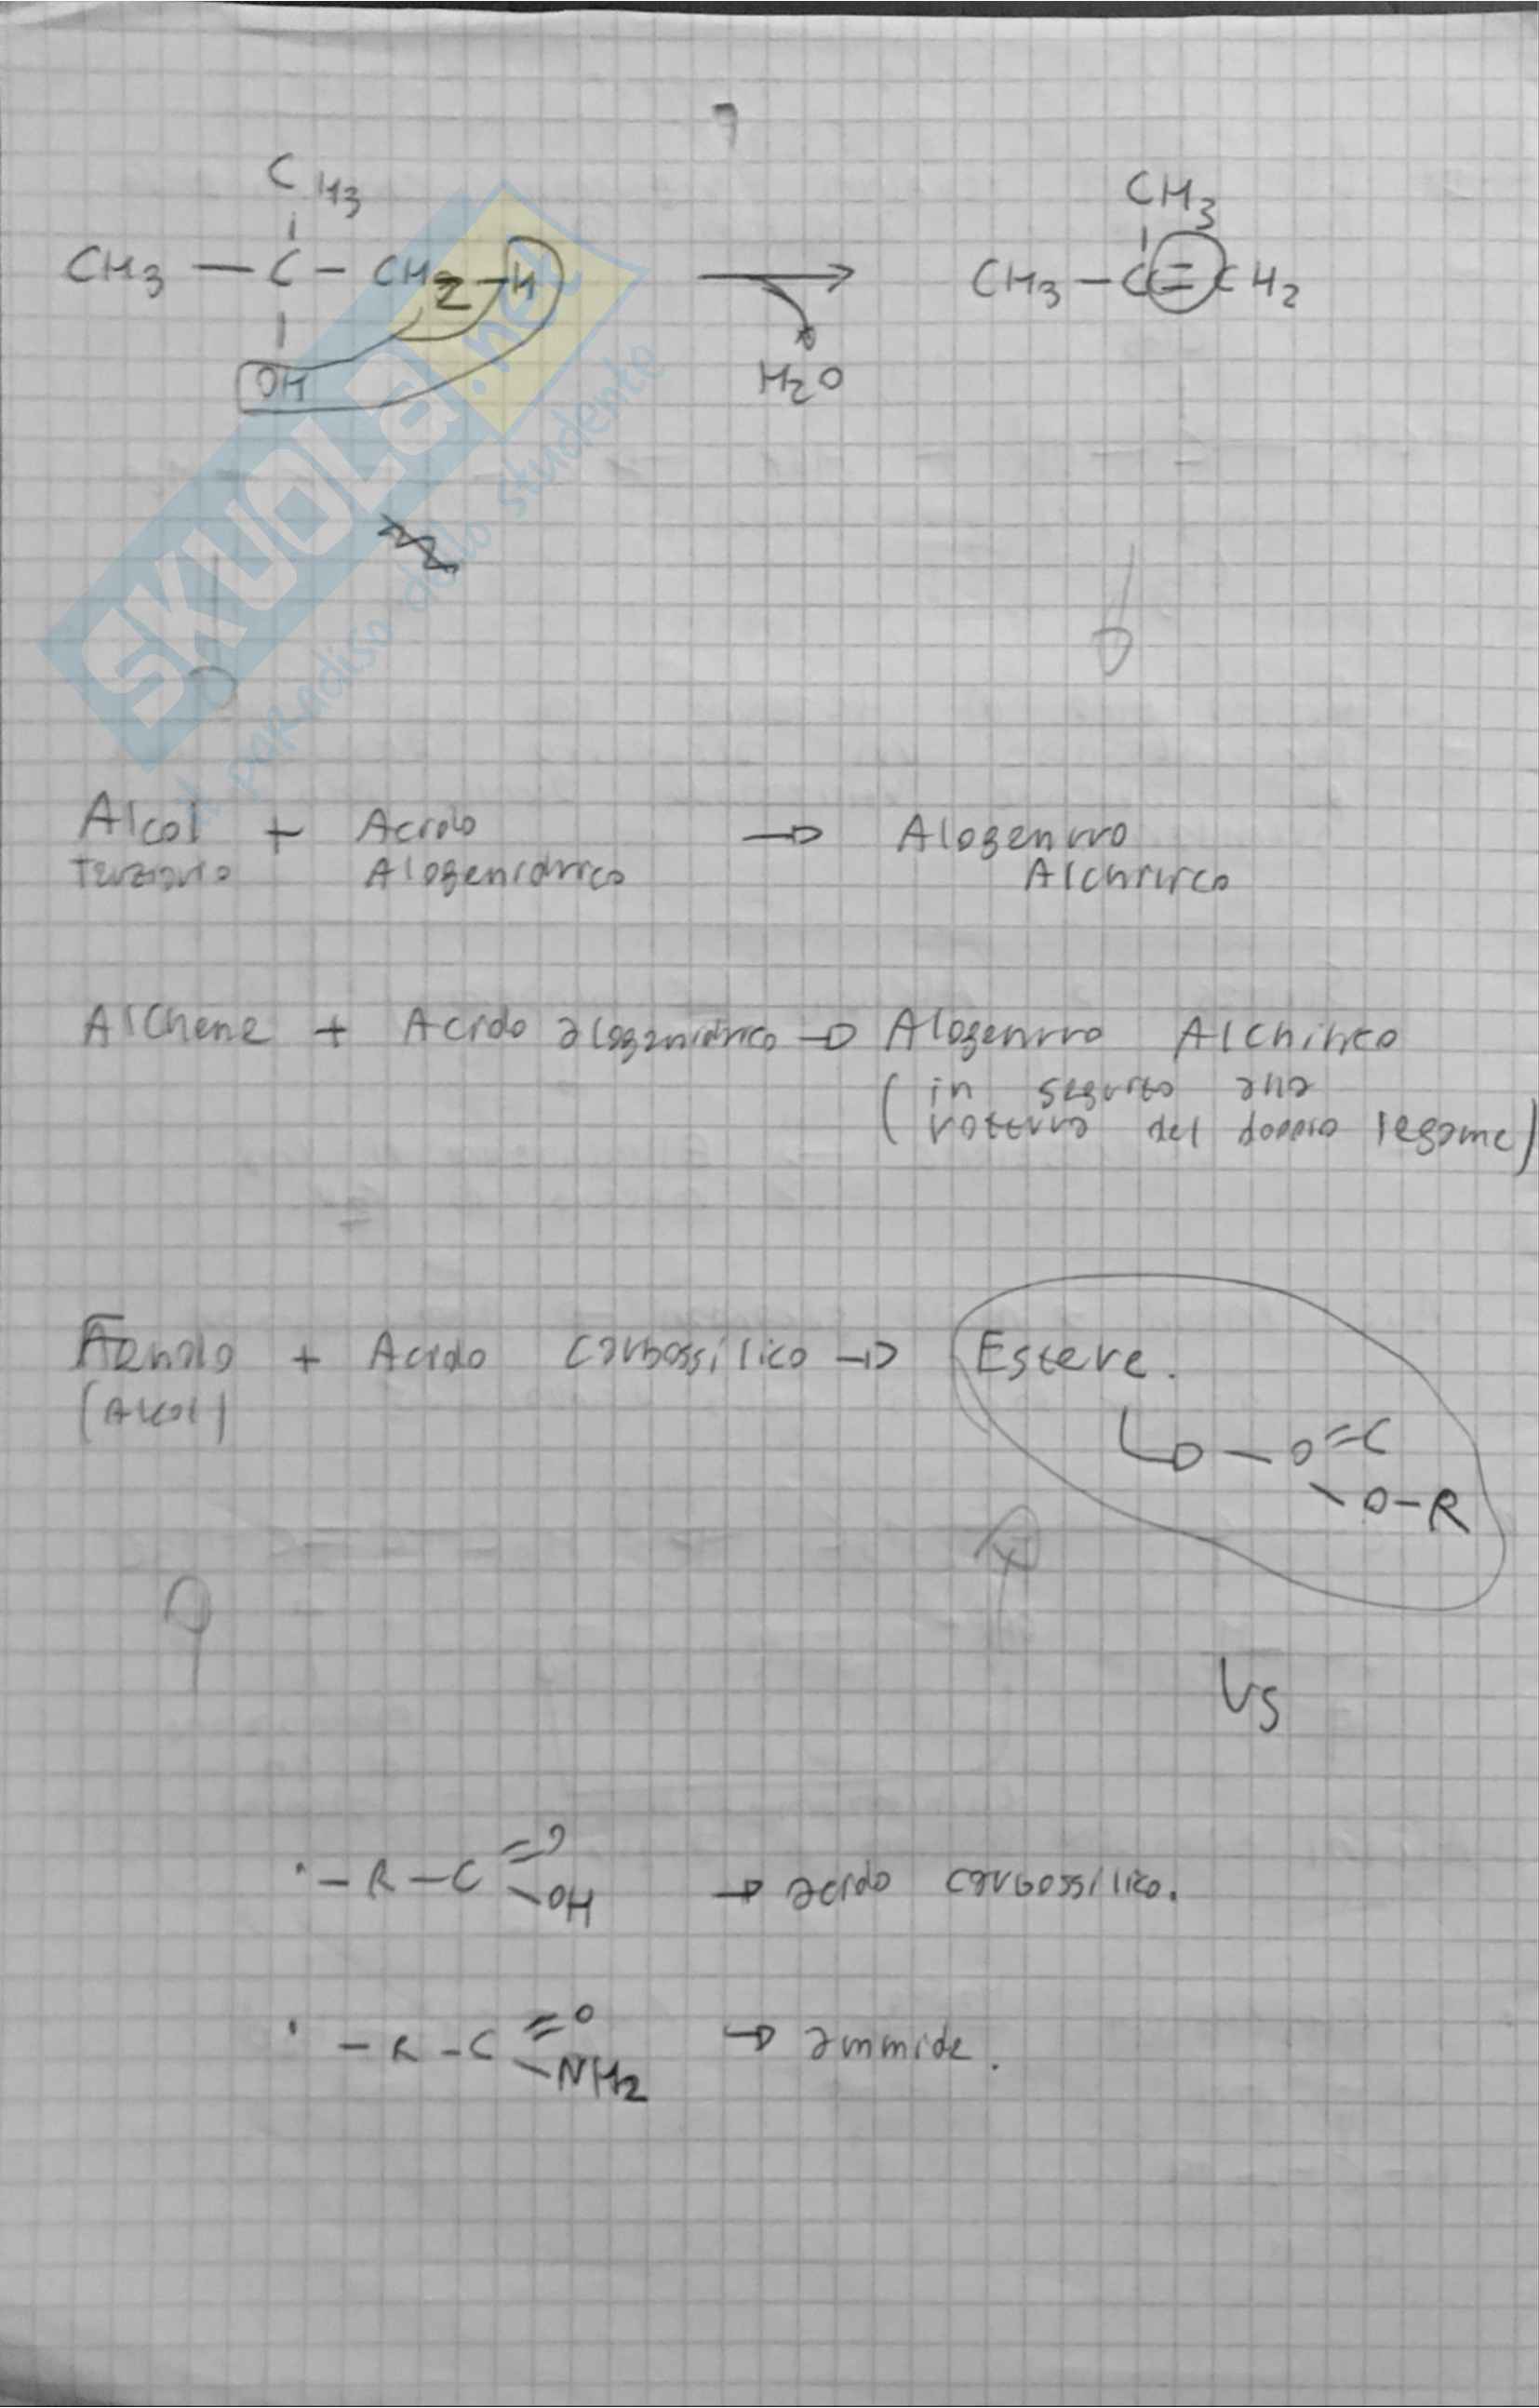 CH3
CH3 — C — CH2 — H
OH
→
H2O
CH3
CH3 — C = CH2
SKUOLa.net
il paradiso dello studente
Alcol + Acido → Alogenuro
Terziario Alogenidrico Alchilico
Alchene + Acido alogenidrico → Alogenuro Alchilico
(in seguito alla
rottura del doppio legame)
Fenolo + Acido carbossilico → Estere.
(Alcol)
— O = C
— O — R
Vs
· — R — C = O
— OH → acido carbossilico.
· — R — C = O
— NH2 → ammide.